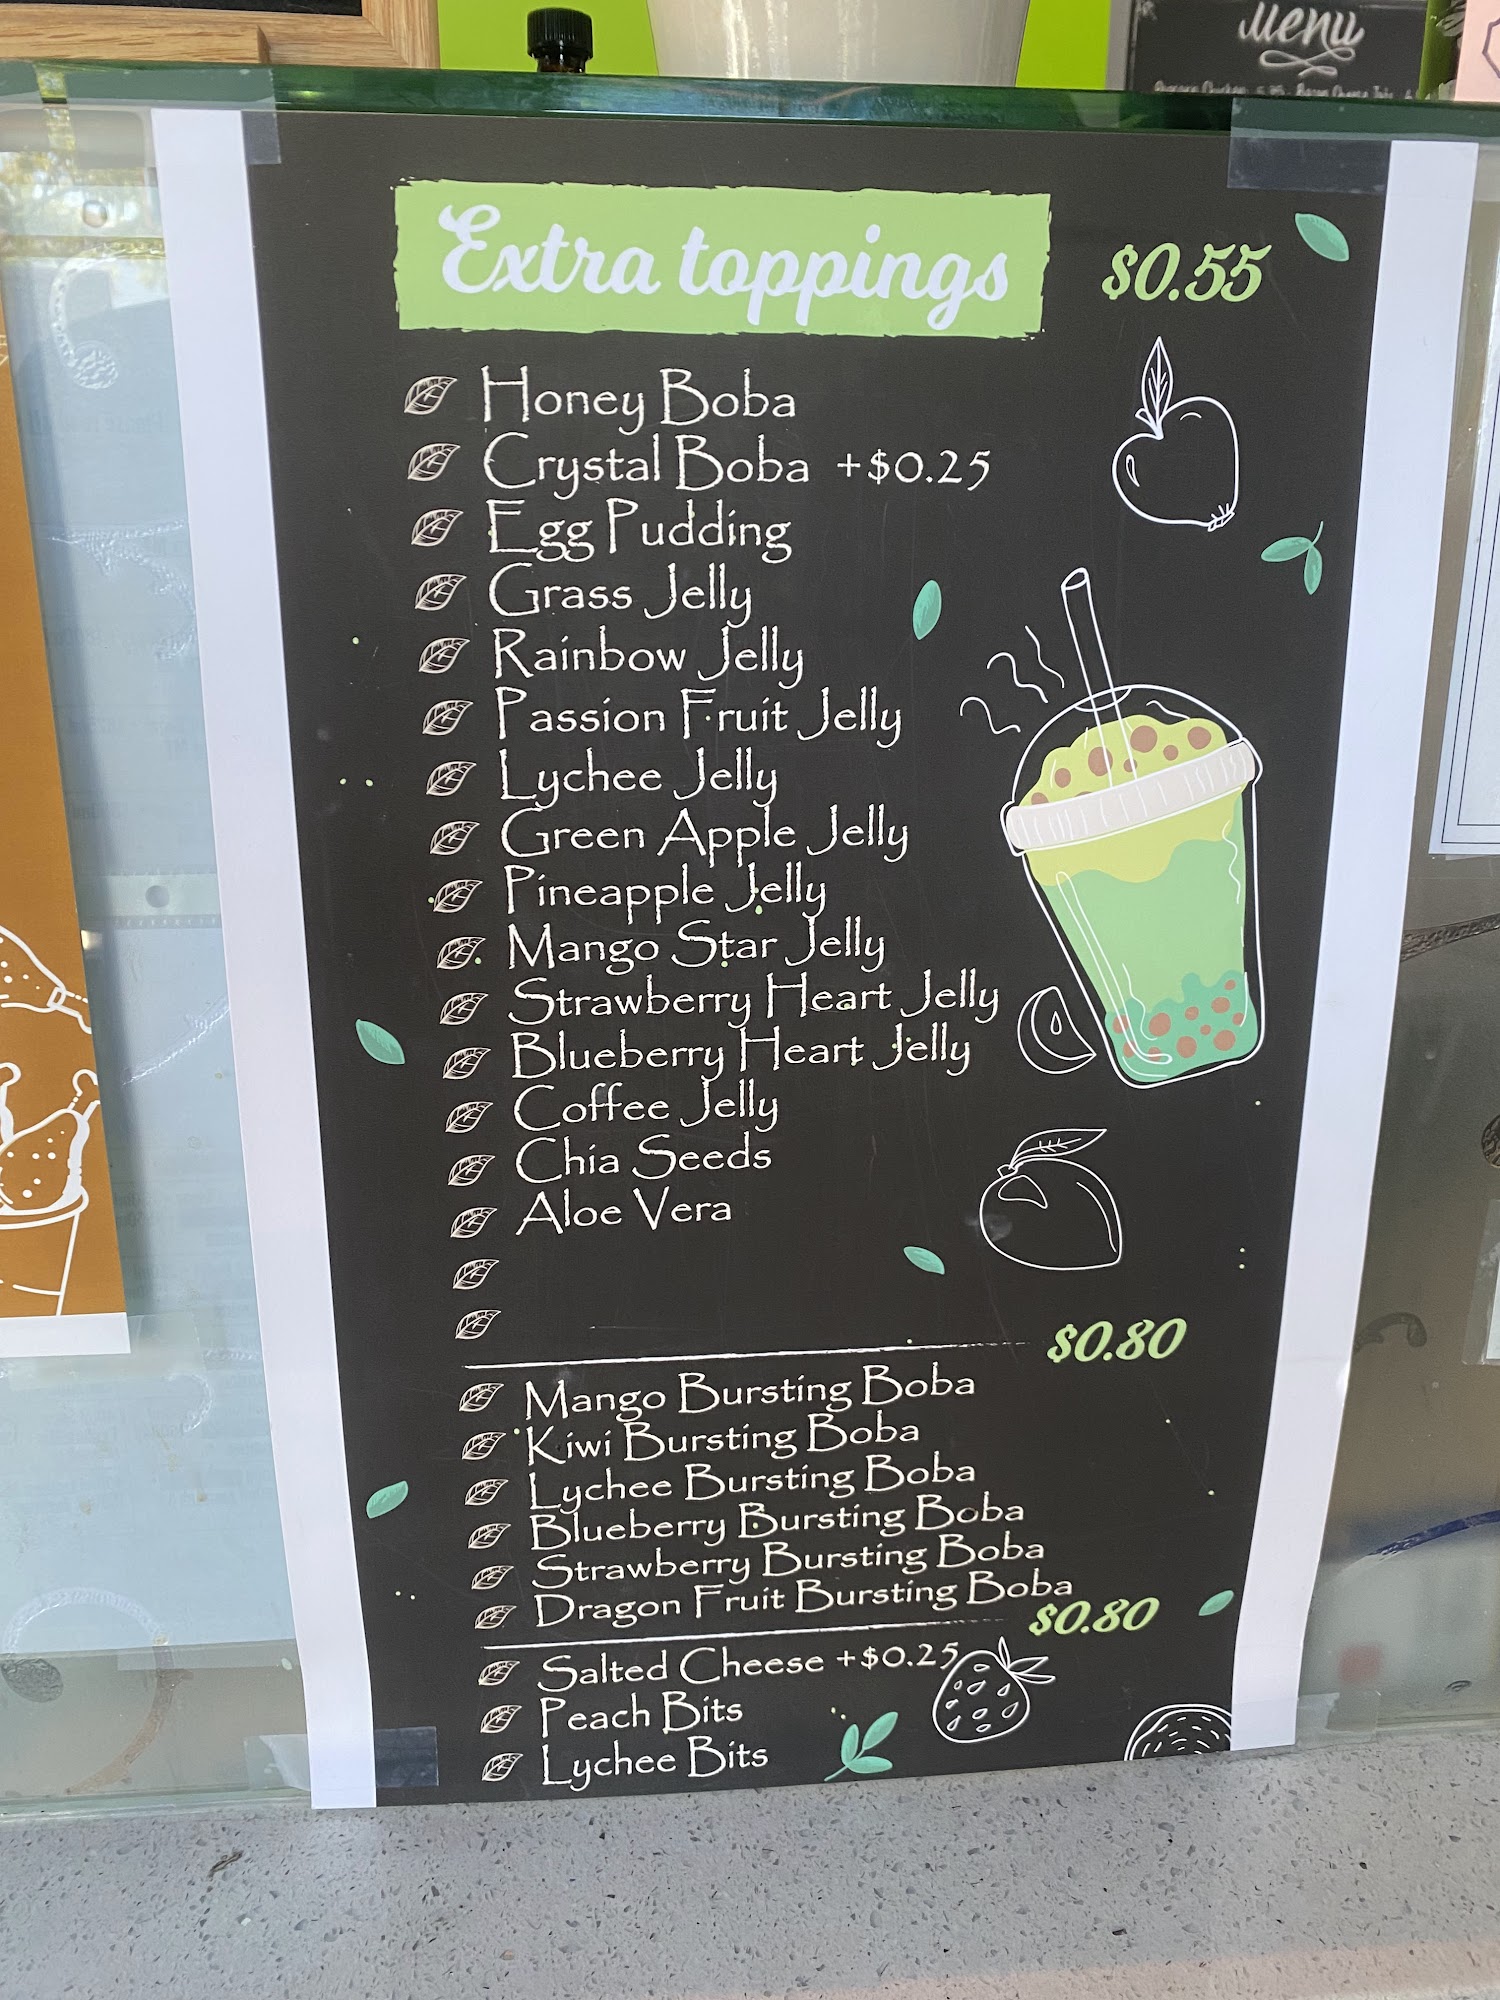 Menu
Extra toppings $0.55
Honey Boba
Crystal Boba +$0.25
Egg Pudding
Grass Jelly
Rainbow Jelly
Passion Fruit Jelly
Lychee Jelly
Green Apple Jelly
Pineapple Jelly
Mango Star Jelly
Strawberry Heart Jelly
Blueberry Heart Jelly
Coffee Jelly
Chia Seeds
Aloe Vera
$0.80
Mango Bursting Boba
Kiwi Bursting Boba
Lychee Bursting Boba
Blueberry Bursting Boba
Strawberry Bursting Boba
Dragon Fruit Bursting Boba
$0.80
Salted Cheese +$0.25
Peach Bits
Lychee Bits